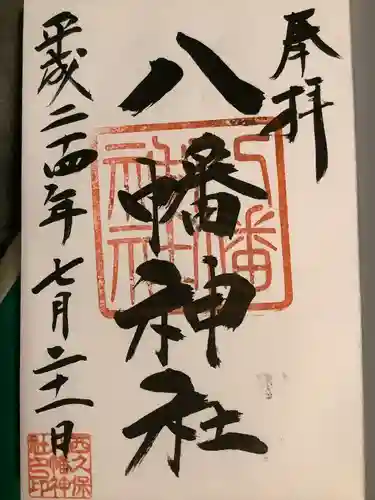 奉拝
八幡神社
平成二十四年七月二十一日
八幡神社
西久保八幡神社之印